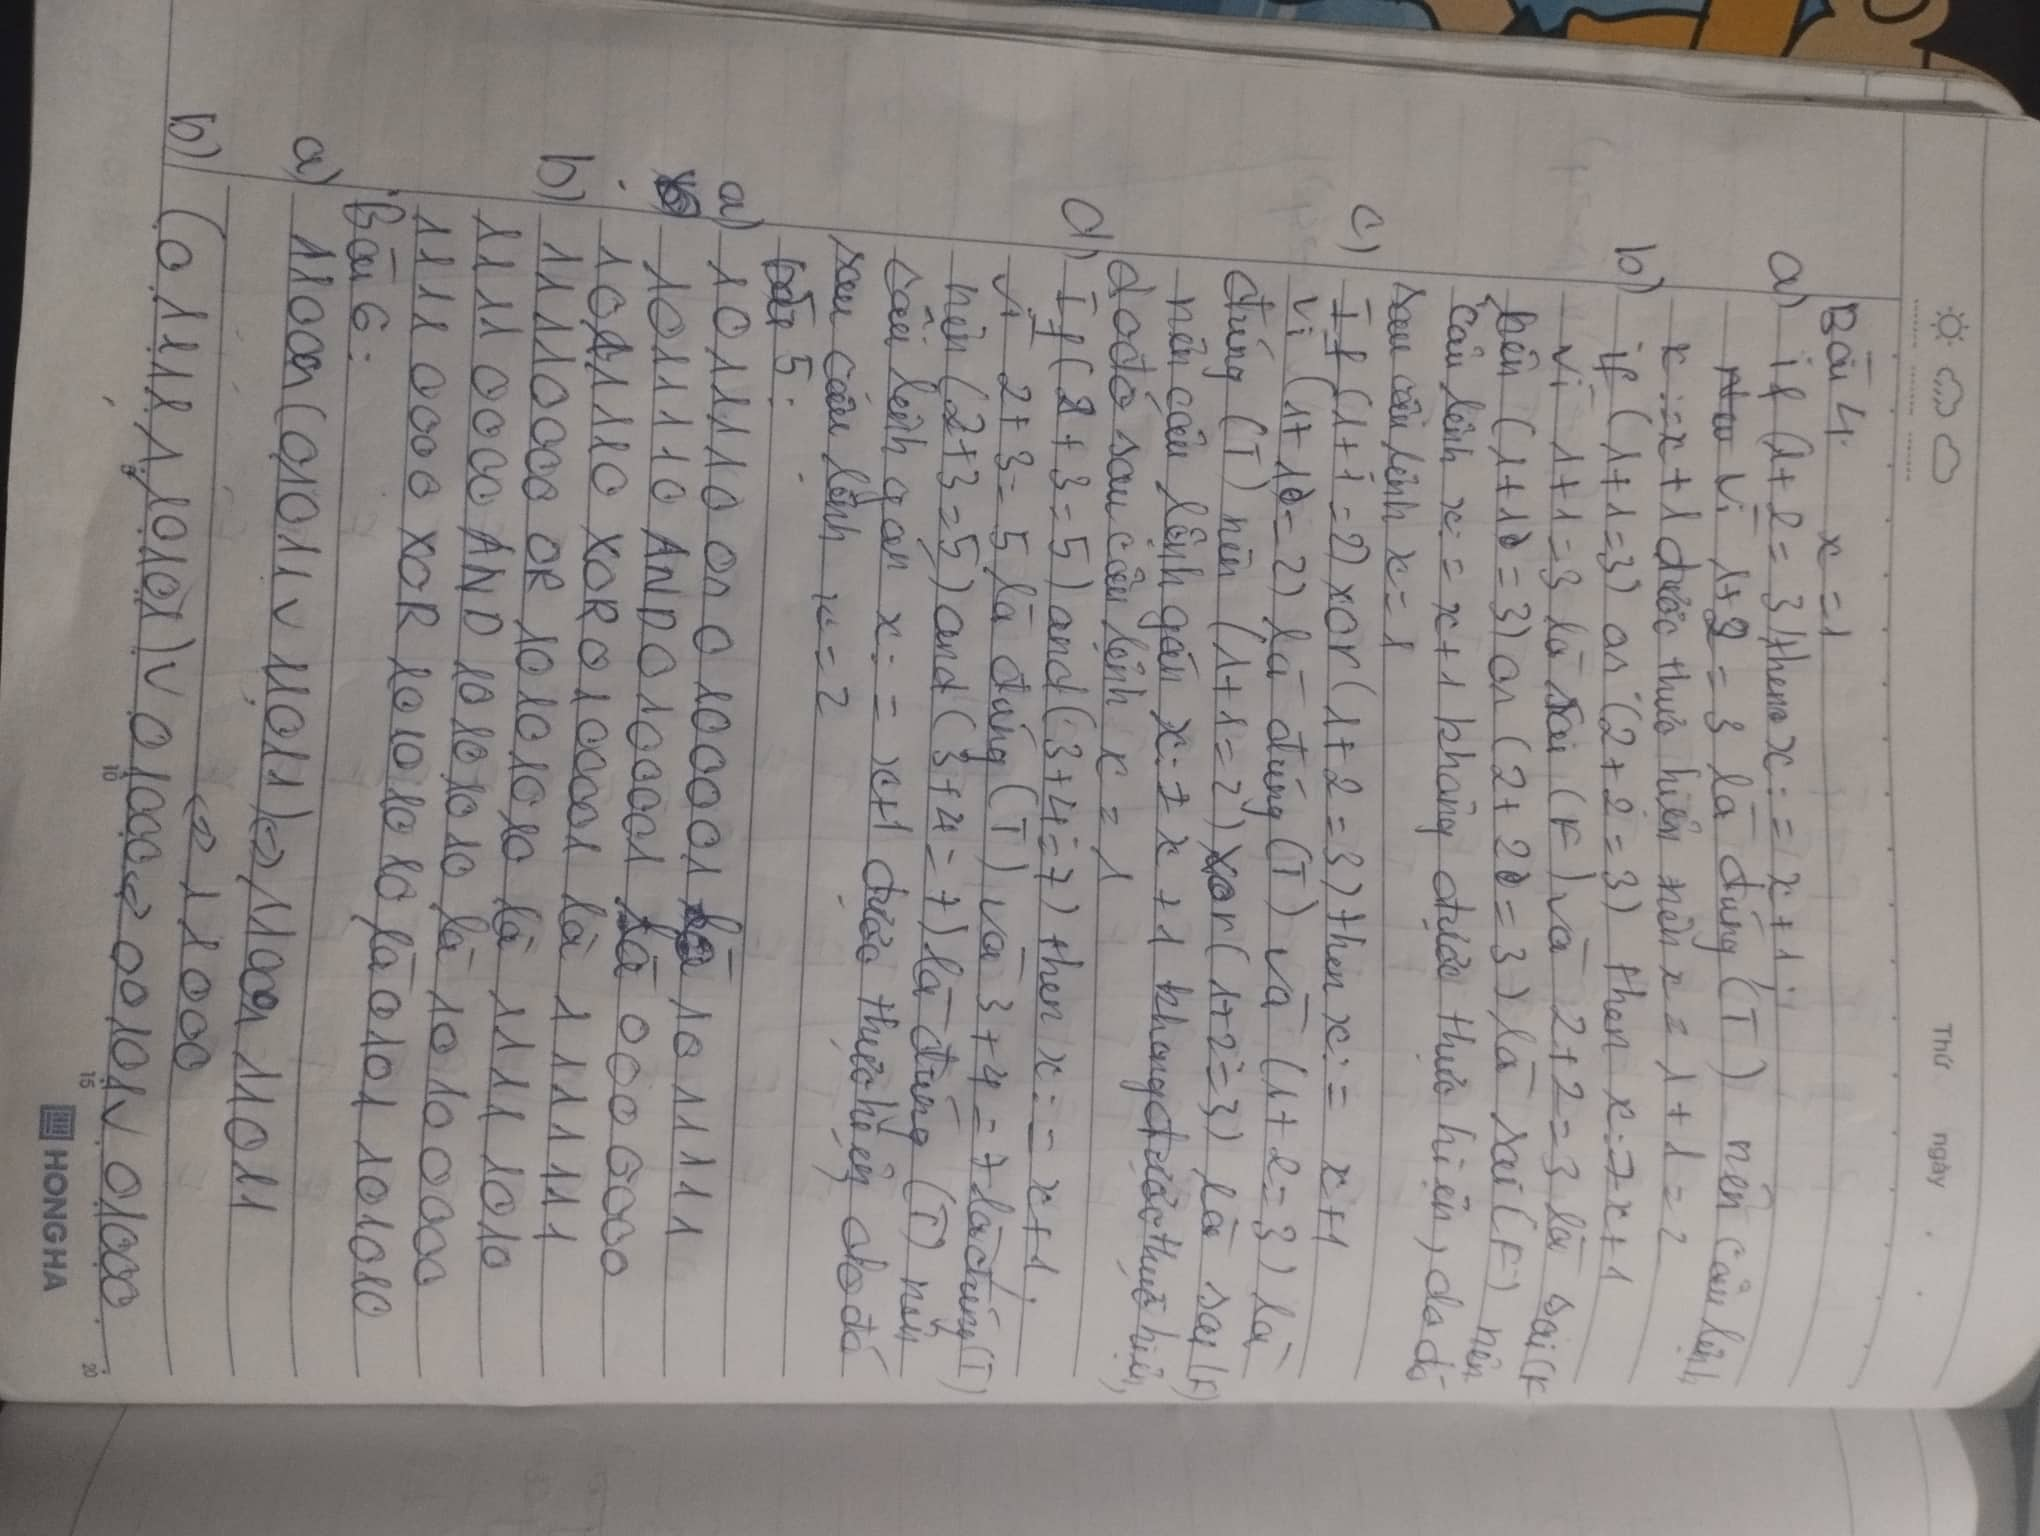 Thứ ngày
Bài 4 x=1
a) if (1+2=3) then x:=x+1;
Vì 1+2=3 là đúng (T) nên câu lệnh
x:=x+1 được thực hiện nên x=1+1=2
b) if (1+1=3) or (2+2=3) then x:=x+1
Vì 1+1=3 là sai (F) và 2+2=3 là sai (F
nên (1+1=3) or (2+2=3) là sai (F) nên
câu lệnh x:=x+1 không được thực hiện, do đó
sau câu lệnh x=1
c) If (1+1=2) xor (1+2=3) then x:=x+1
Vì (1+1=2) là đúng (T) và (1+2=3) là
đúng (T) nên (1+1=2) xor (1+2=3) là sai (F)
nên câu lệnh gán x:=x+1 không được thực hiện,
do đó sau câu lệnh x=1
d) If (2+3=5) and (3+4=7) then x:=x+1;
Vì 2+3=5 là đúng (T) và 3+4=7 là đúng (T)
nên (2+3=5) and (3+4=7) là đúng (T) nên
câu lệnh gán x:=x+1 được thực hiện do đó
sau câu lệnh x=2
bài 5:
a) 101110 or 0100001 là 101111
101110 AND 0100001 là 0000000
101110 XOR 0100001 là 1111111
b) 11110000 OR 10101010 là 11111010
11110000 AND 10101010 là 10100000
11110000 XOR 10101010 là 01011010
Bài 6:
a) 11000 ∧ (01011 ∨ 11011) <=> 11000 ∧ 11011
<=> 11000
b) (01111 ∧ 10101) ∨ 01000 <=> 00101 ∨ 01000
10
15
20
HONG HA